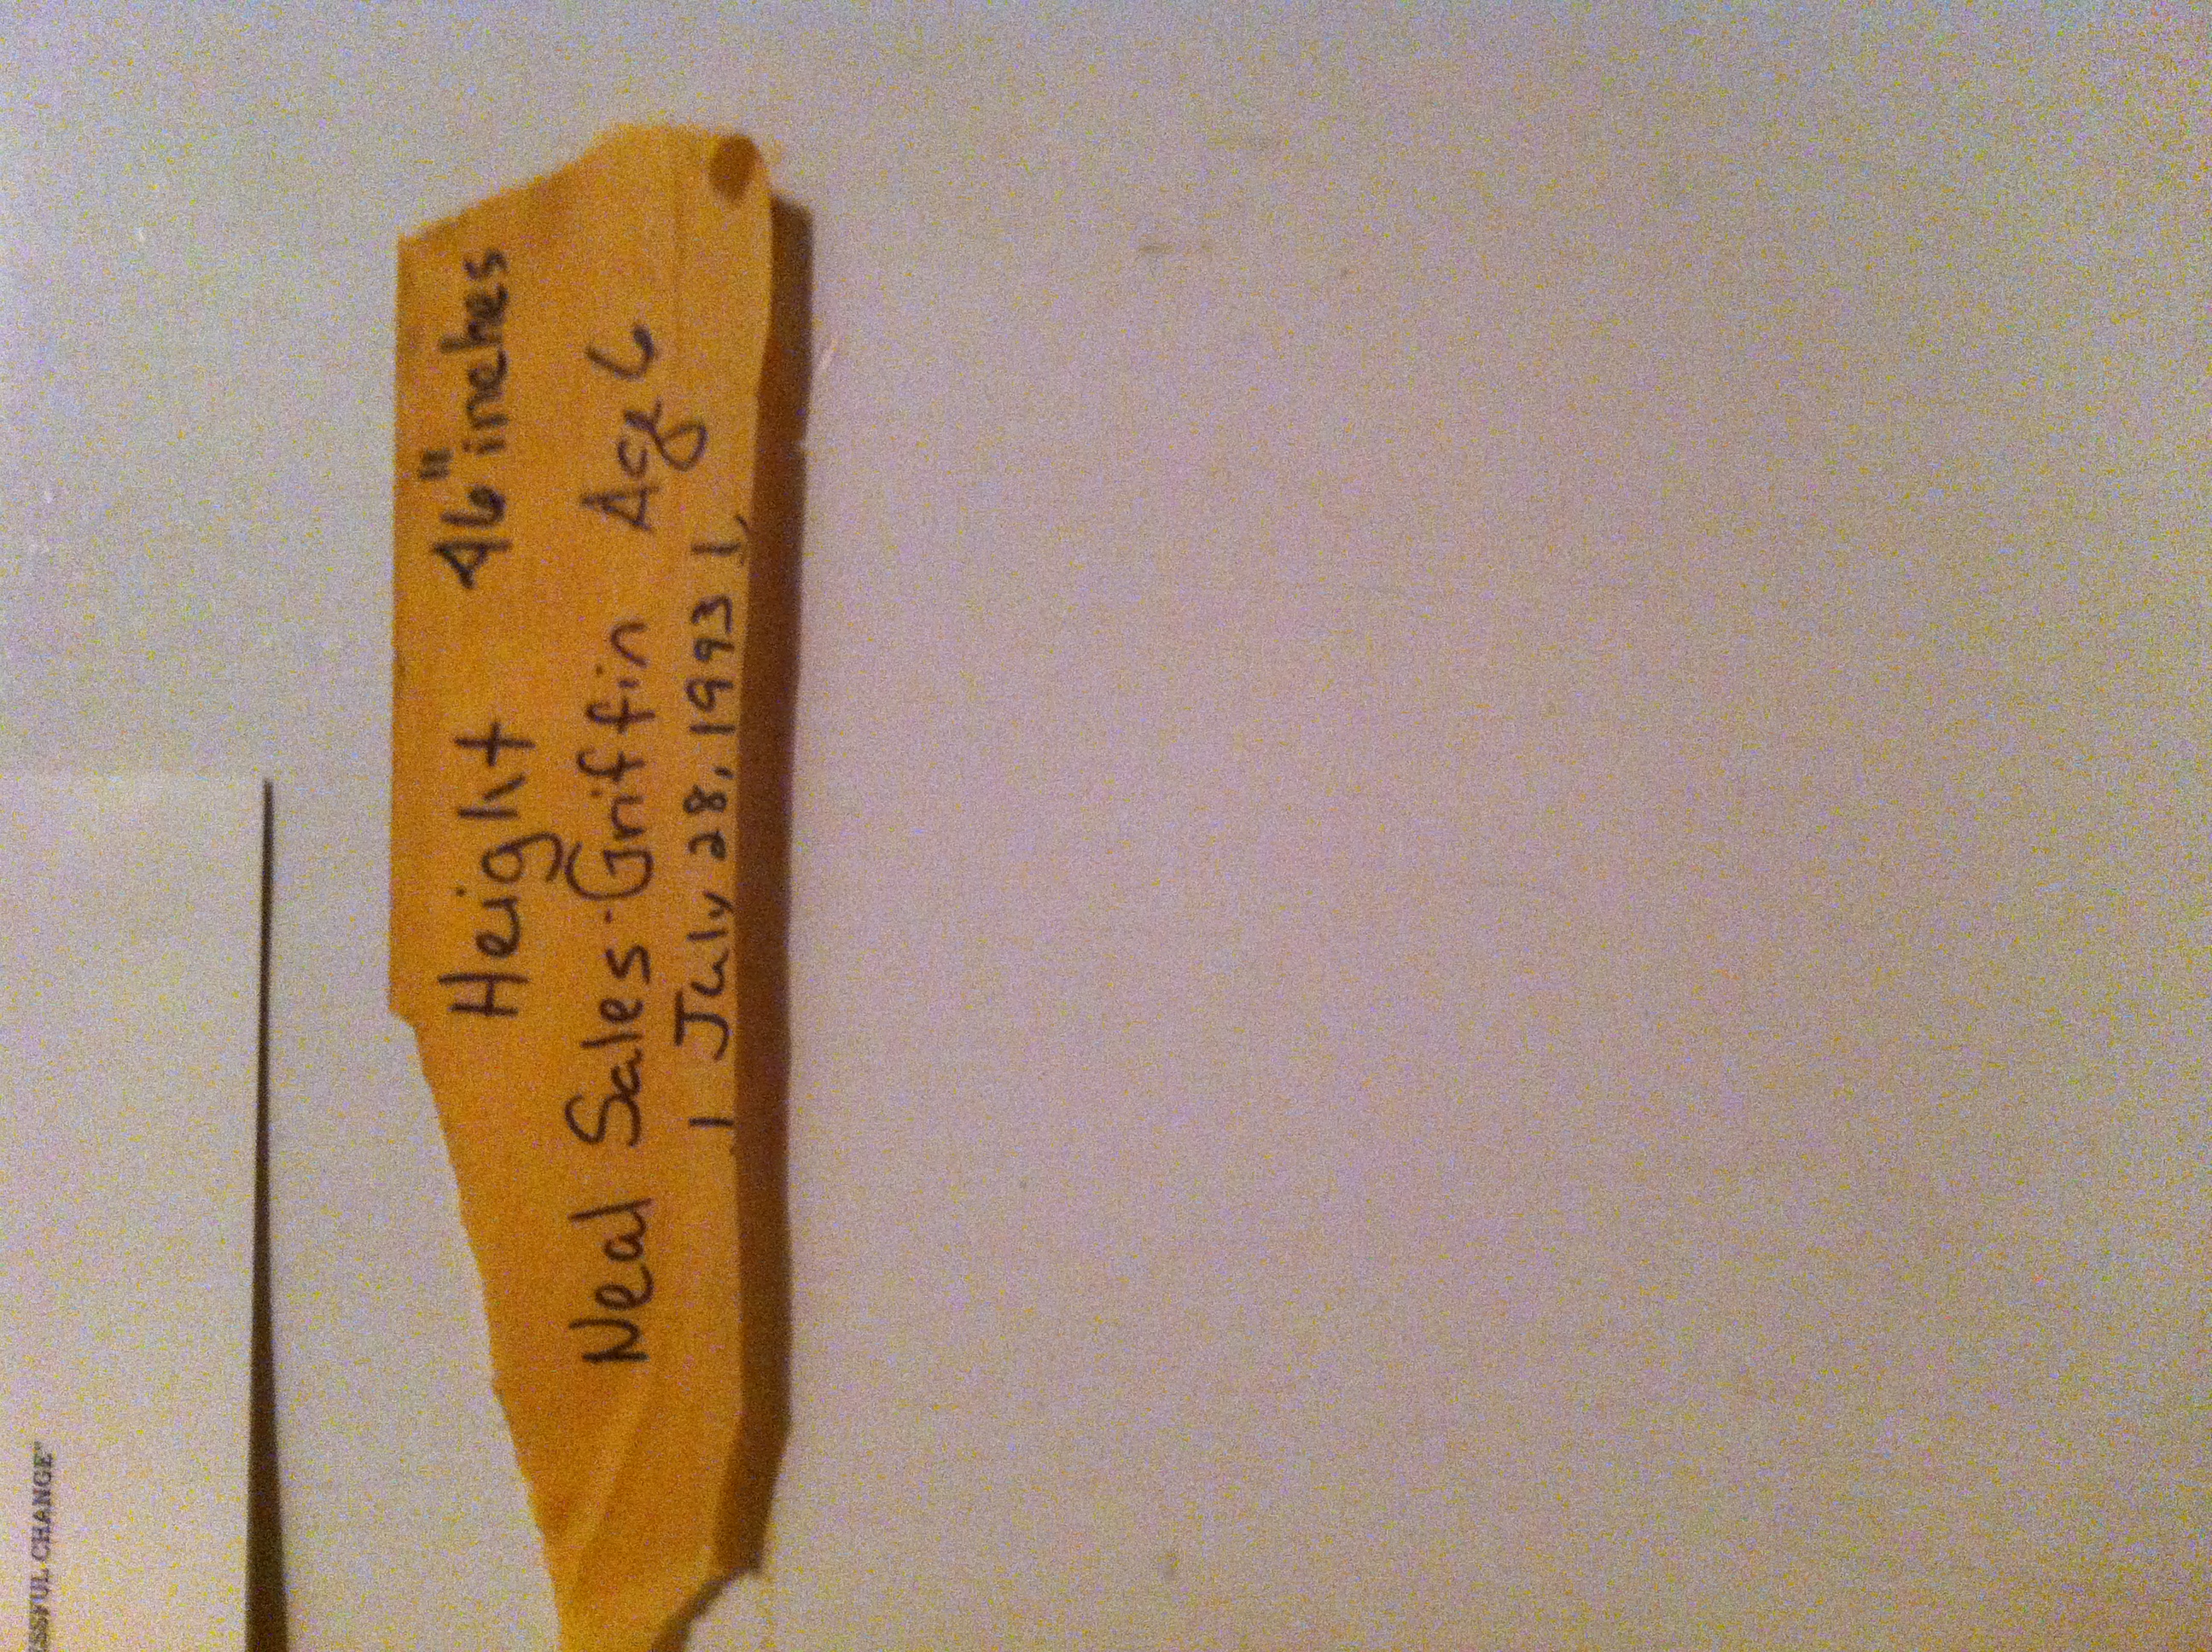 ESSFUL CHANGE"
Height 46" inches
Neal Sales-Griffin Age 6
↓ July 28, 1993 ↓